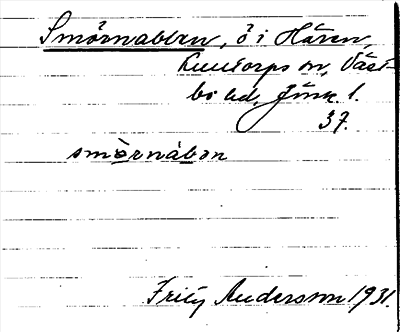 Smörnabben, ö i Hären,
Kulltorps sn, Väst-
bo hd, Jönk. l.
37.
smörnábən
Frity Andersson 1931.